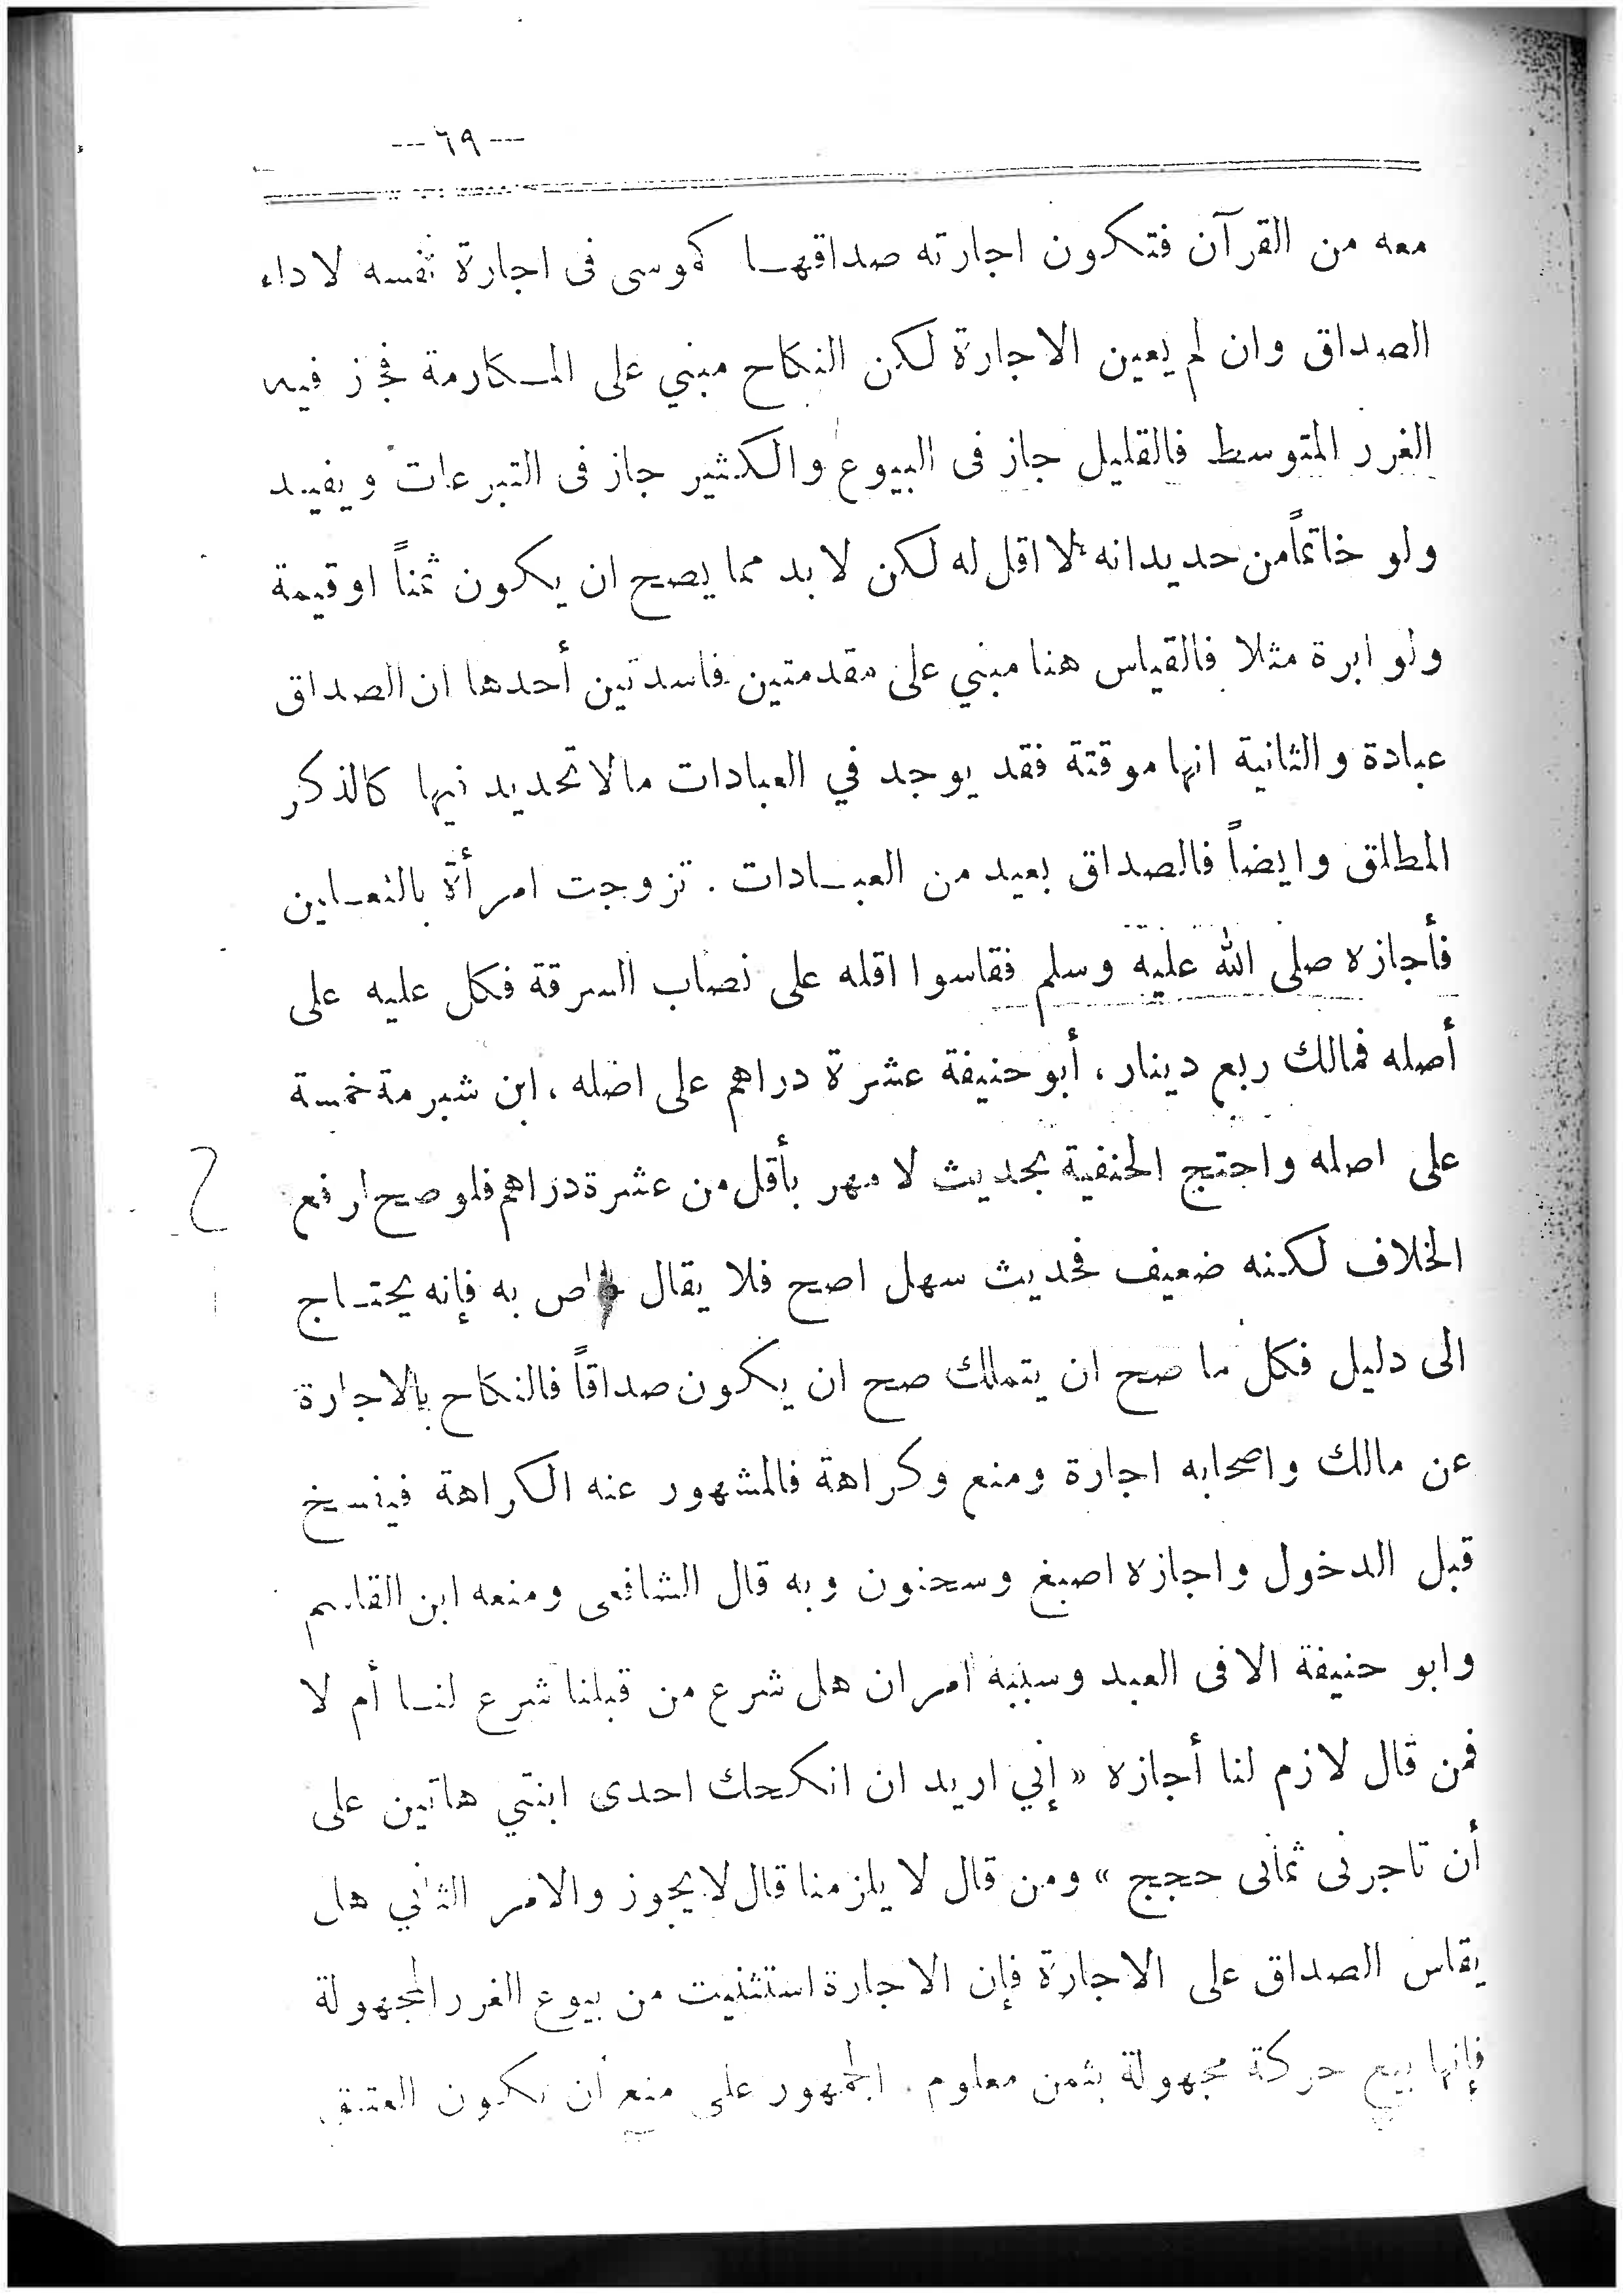 --- ٦٩ ---
معه من القرآن فتكون اجارته صداقها كموسى فى اجارة نفسه لاداء
الصداق وان لم يعين الاجارة لكن النكاح مبني على المكارمة فجز فيه
الغرر المتوسط فالقليل جاز فى البيوع والكثير جاز فى التبرعات ويفيد
ولو خاتماً من حديد انه لا اقل له لكن لا بد مما يصح ان يكون ثمناً او قيمة
ولو ابرة مثلا فالقياس هنا مبني على مقدمتين فاسدتين أحدها ان الصداق
عبادة والثانية انها موقتة فقد يوجد في العبادات مالا تحديد فيها كالذكر
المطلق وايضاً فالصداق بعيد من العبادات . تزوجت امرأة بالنعلين
فأجازه صلى الله عليه وسلم فقاسوا اقله على نصاب السرقة فكل عليه على
أصله فمالك ربع دينار ، أبو حنيفة عشرة دراهم على اصله ، ابن شبرمة خمسة
على اصله واحتج الحنفية بحديث لا مهر بأقل من عشرة دراهم فلو صح ارفع
الخلاف لكنه ضعيف فحديث سهل اصح فلا يقال خاص به فإنه يحتاج
الى دليل فكل ما صح ان يتملك صح ان يكون صداقاً فالنكاح بالاجارة
عن مالك واصحابه اجارة ومنع وكراهة فالمشهور عنه الكراهة فيفسخ
قبل الدخول واجازه اصبغ وسحنون وبه قال الشافعى ومنعه ابن القاسم
وابو حنيفة الا فى العبد وسببه امران هل شرع من قبلنا شرع لنا أم لا
فمن قال لازم لنا أجازه « إني اريد ان انكحك احدى ابنتي هاتين على
أن تاجرنى ثمانى حجج » ومن قال لا يلزمنا قال لا يجوز والامر الثاني هل
يقاس الصداق على الاجارة فإن الاجارة استثنيت من بيوع الغرر المجهولة
فإنها بيع حركة مجهولة بثمن معلوم . الجمهور على منع أن يكون العتق